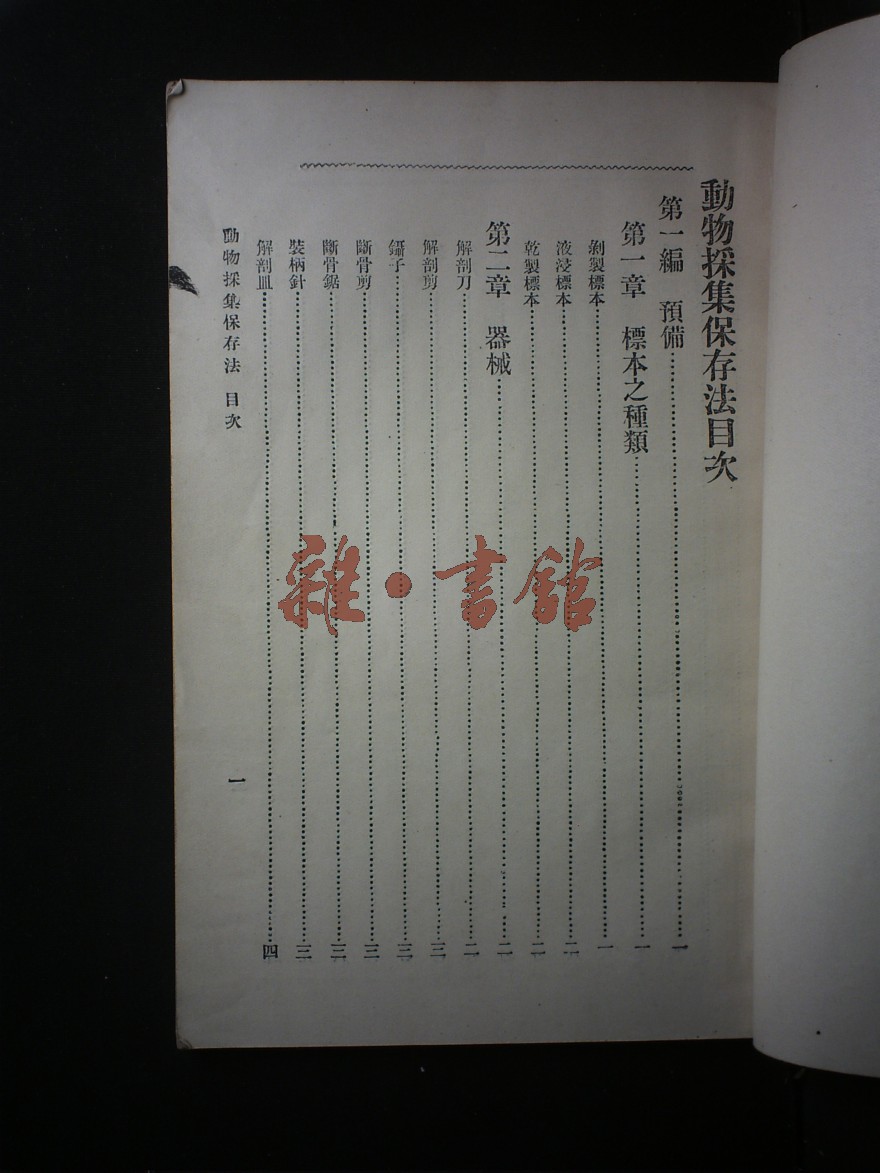 動物採集保存法目次
第一編　預備…………一
第一章　標本之種類…………一
剝製標本…………一
液浸標本…………二
乾製標本…………二
第二章　器械…………二
解剖刀…………二
解剖剪…………三
鑷子…………三
斷骨剪…………三
斷骨鋸…………三
裝柄針…………三
解剖皿…………四
動物採集保存法　目次
一
雜·書館